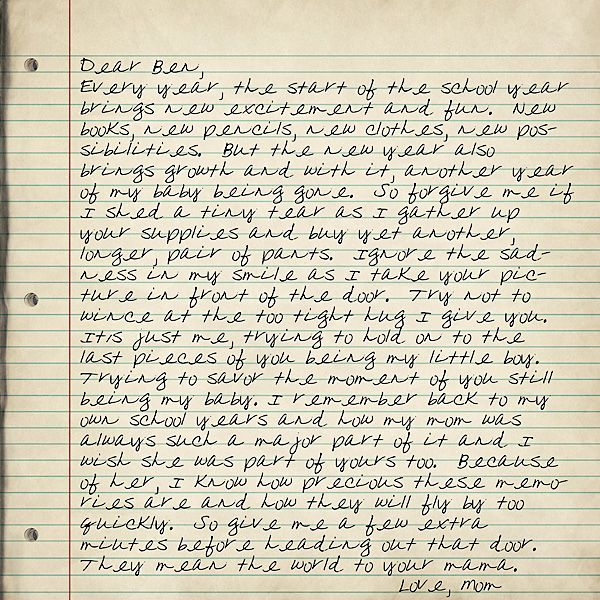 Dear Ben,
Every year, the start of the school year
brings new excitement and fun. New
books, new pencils, new clothes, new pos-
sibilities. But the new year also
brings growth and with it, another year
of my baby being gone. So forgive me if
I shed a tiny tear as I gather up
your supplies and buy yet another,
longer, pair of pants. Ignore the sad-
ness in my smile as I take your pic-
ture in front of the door. Try not to
wince at the too tight hug I give you.
It's just me, trying to hold on to the
last pieces of you being my little boy.
Trying to savor the moment of you still
being my baby. I remember back to my
own school years and how my mom was
always such a major part of it and I
wish she was part of yours too. Because
of her, I know how precious these memo-
ries are and how they will fly by too
quickly. So give me a few extra
miutes before heading out that door.
They mean the world to your mama.
Love, Mom